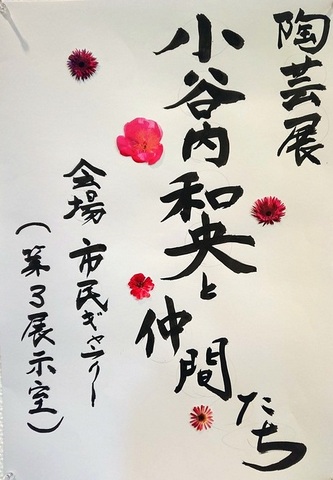 陶芸展
小谷内和央と仲間たち
会場 市民ギャラリー
(第3展示室)